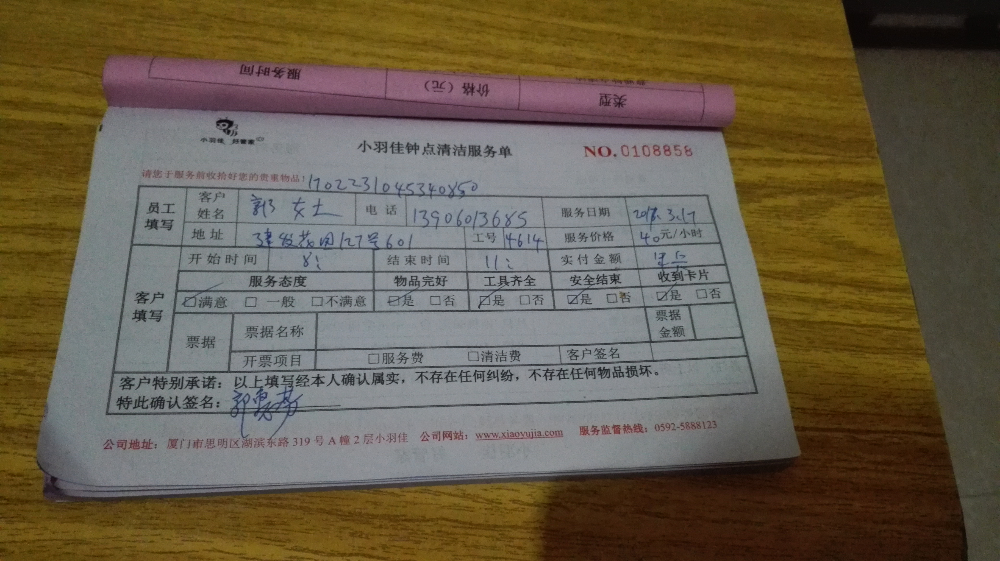 服务时间 价格（元） 类型
小羽佳 好管家
小羽佳钟点清洁服务单 NO.0108858
请您于服务前收拾好您的贵重物品！1702231045340850
员工填写 客户姓名 郭女士 电话 13906013685 服务日期 3.17
地址 建发花园127号601 工号 4614 服务价格 40元/小时
开始时间 8: 结束时间 11: 实付金额
客户填写 服务态度 物品完好 工具齐全 安全结束 收到卡片
☑满意 □一般 □不满意 ☑是 □否 ☑是 □否 ☑是 □否 ☑是 □否
票据 票据名称 票据金额
开票项目 □服务费 □清洁费 客户签名
客户特别承诺：以上填写经本人确认属实，不存在任何纠纷，不存在任何物品损坏。
特此确认签名：郭
公司地址：厦门市思明区湖滨东路319号A幢2层小羽佳 公司网站：www.xiaoyujia.com 服务监督热线：0592-5888123